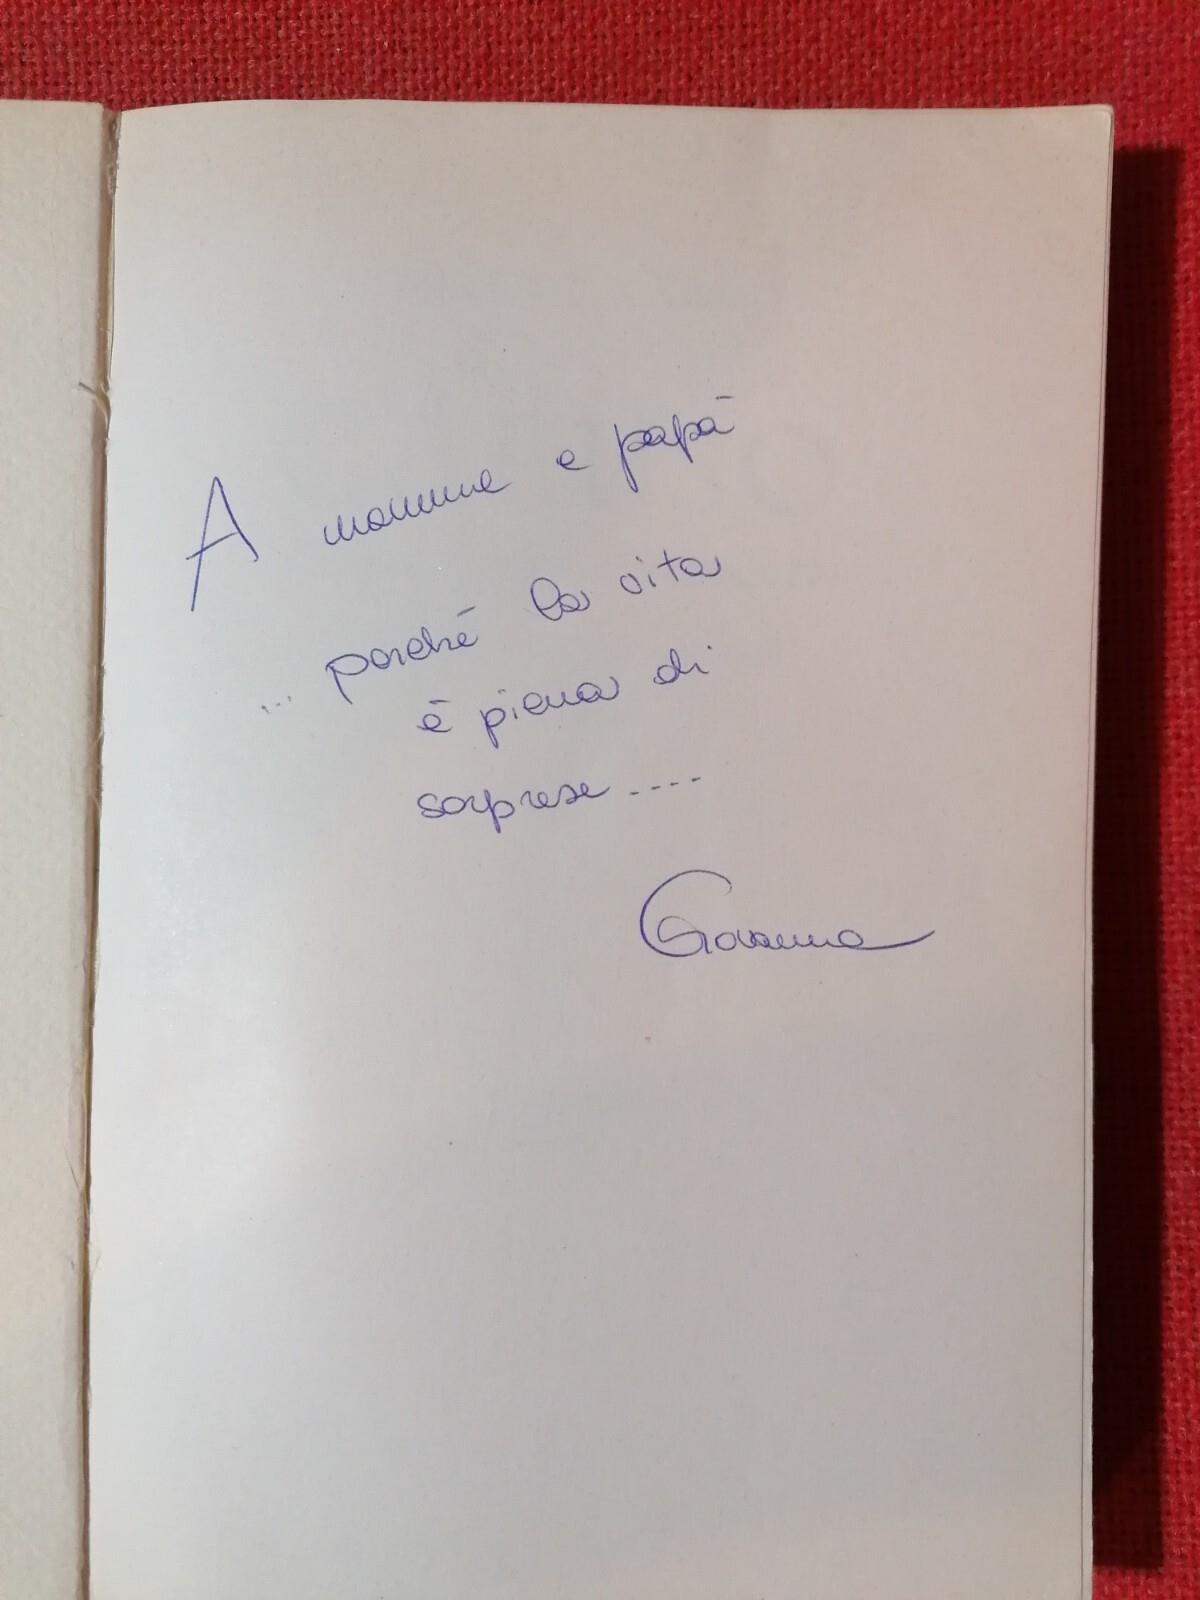 A mamma e papà
... perché la vita
è piena di
sorprese ....
Giovanna